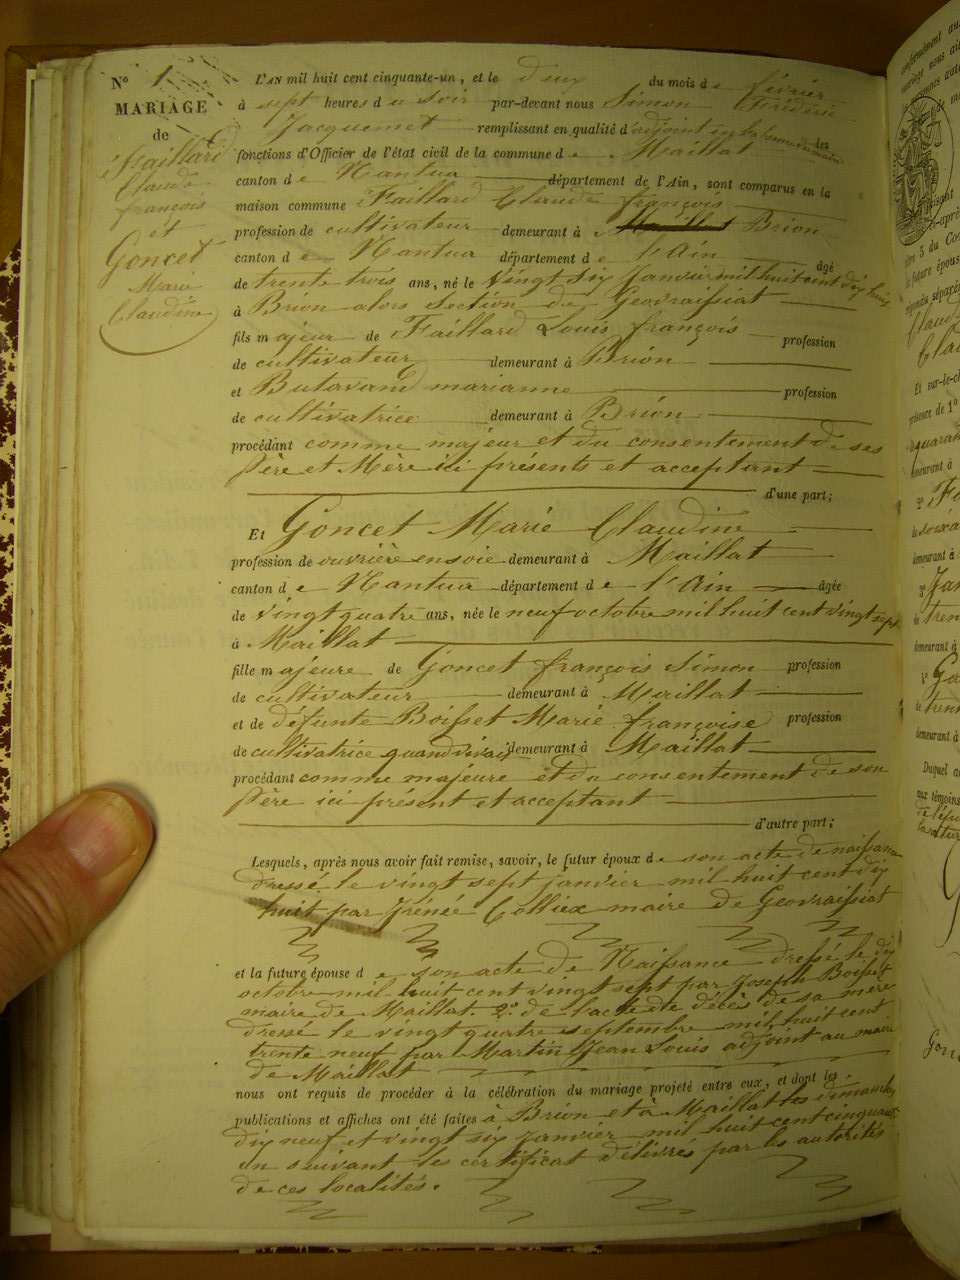 N° 1
MARIAGE
de
Faillard
Claude
françois
et
Goncet
Marie
Claudine
L'AN mil huit cent cinquante-un, et le deux du mois de février
à sept heures du soir par-devant nous Simon Frédéric
Jacquemet remplissant en qualité d'adjoint les
fonctions d'Officier de l'état civil de la commune de Maillat
canton de Nantua département de l'Ain, sont comparus en la
maison commune Faillard Claude françois
profession de cultivateur demeurant à Brion
canton de Nantua département de l'Ain âgé
de trente trois ans, né le vingt six Janvier mil huit cent dix huit
à Brion alors section de Geovraissiat
fils majeur de Faillard Louis françois profession
de cultivateur demeurant à Brion
et Butavand marianne profession
de cultivatrice demeurant à Brion
procédant comme majeur et du consentement de ses
Père et Mère ici présents et acceptant
d'une part;
Et Goncet Marie Claudine
profession de ouvrière en soie demeurant à Maillat
canton de Nantua département de l'Ain âgée
de vingt quatre ans, née le neuf octobre mil huit cent vingt sept
à Maillat
fille majeure de Goncet françois Simon profession
de cultivateur demeurant à Maillat
et de défunte Boisset Marie françoise profession
de cultivatrice quand vivait demeurant à Maillat
procédant comme majeure et du consentement de son
Père ici présent et acceptant
d'autre part;
Lesquels, après nous avoir fait remise, savoir, le futur époux de son acte de naissance
dressé le vingt sept janvier mil huit cent dix
huit par Irénée Colliex maire de Geovraissiat
et la future épouse de son acte de Naissance dressé le dix
octobre mil huit cent vingt sept par Joseph Boisset
maire de Maillat. 2° de l'acte de décès de sa mère
dressé le vingt quatre septembre mil huit cent
trente neuf par Martin Jean Louis adjoint au maire
de Maillat
nous ont requis de procéder à la célébration du mariage projeté entre eux, et dont les
publications et affiches ont été faites à Brion et à Maillat les dimanches
dix neuf et vingt six janvier mil huit cent cinquante
un suivant les certificat délivrés par les autorités
de ces localités.